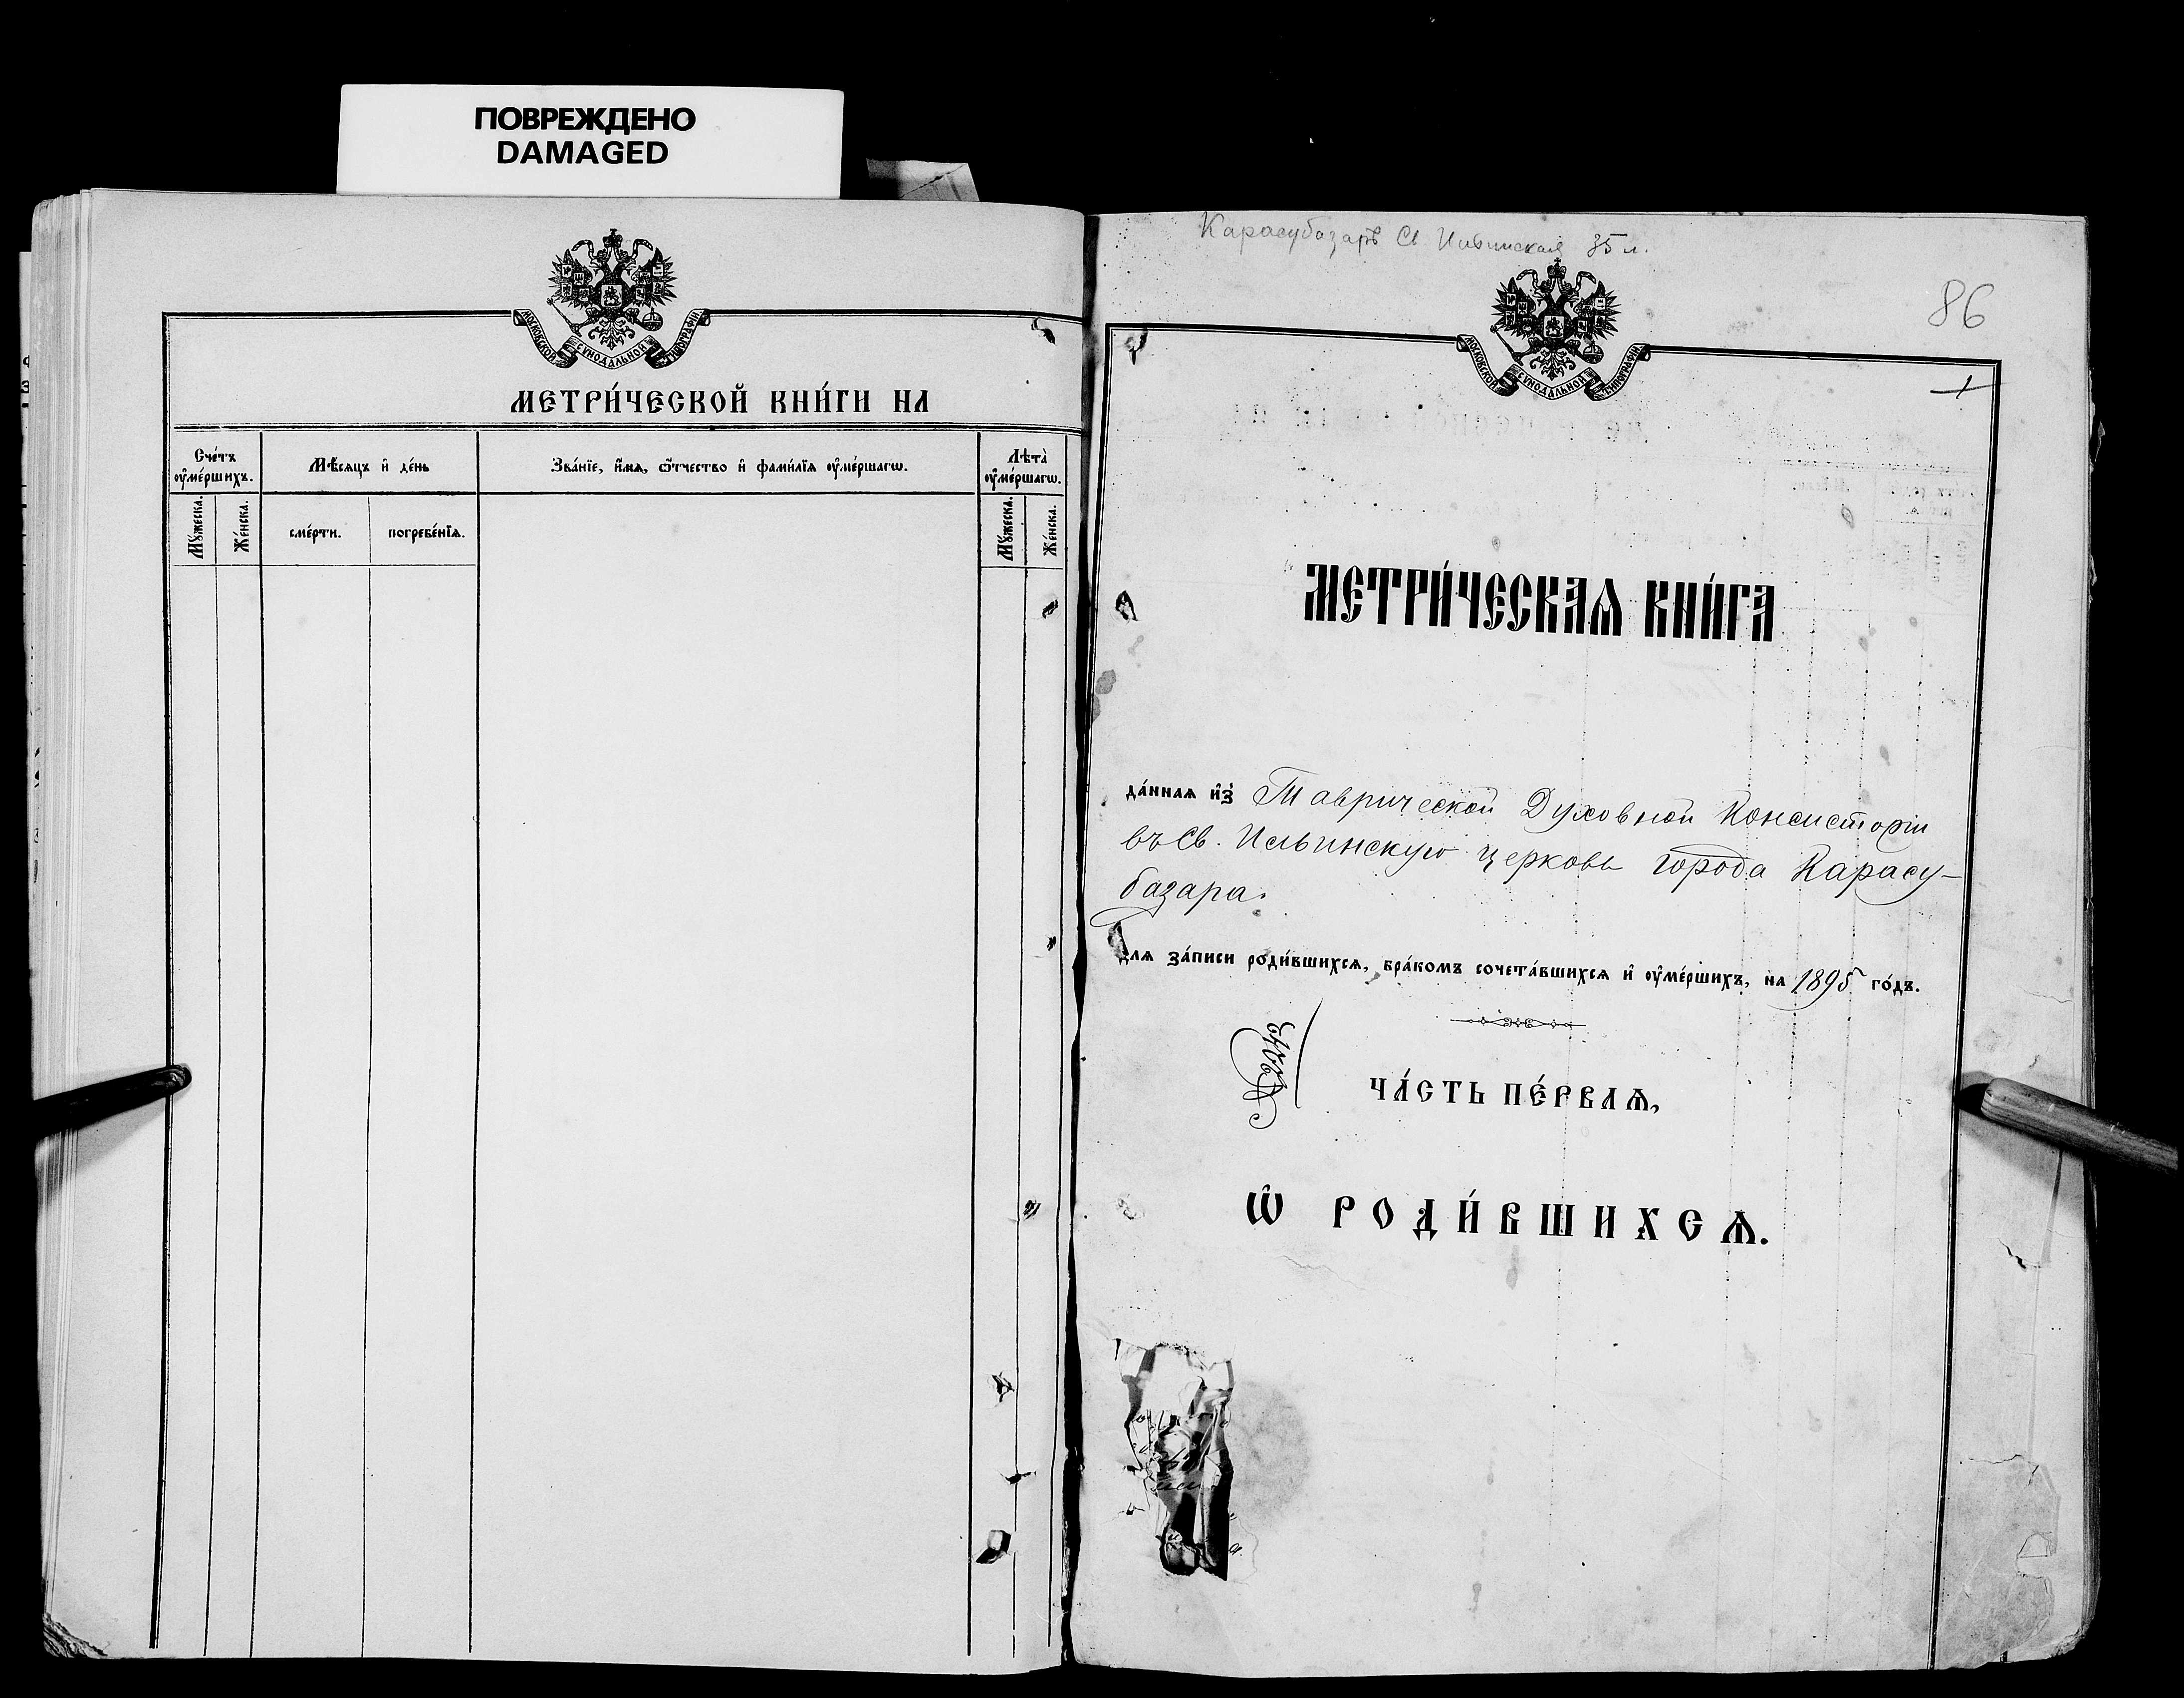 ПОВРЕЖДЕНО
DAMAGED
МОСКОВСКОЙ СѴНОДАЛЬНОЙ ТИПОГРАФІИ
МЕТРИ́ЧЕСКОЙ КНИ́ГИ НА
Сче́тъ ᲂу҆ме́ршихъ.
Мѣ́сяцъ и҆ де́нь
Зва́нїе, и҆́мѧ, ѻ҆́тчество и҆ фами́лїѧ ᲂу҆ме́ршагѡ.
Лѣта̀ ᲂу҆ме́ршагѡ.
Мꙋ́жеска.
Же́нска.
сме́рти.
погребе́нїѧ.
Мꙋ́жеска.
Же́нска.
Карасубазаръ Св. Ильинская 35 л.
86
МОСКОВСКОЙ СѴНОДАЛЬНОЙ ТИПОГРАФІИ
1
МЕТРИ́ЧЕСКАѦ КНИ́ГА
да́ннаѧ и҆з̾ Таврической Духовной Консисторіи
въ Св. Ильинскую церковь города Карасу-
базара.
Длѧ за́писи роди́вшихсѧ, бра́комъ сочета́вшихсѧ и҆ ᲂу҆ме́ршихъ, на 1895 го́дъ.
ЧА́СТЬ ПЕ́РВАѦ,
Ѡ҆ РОДИ́ВШИХСѦ.